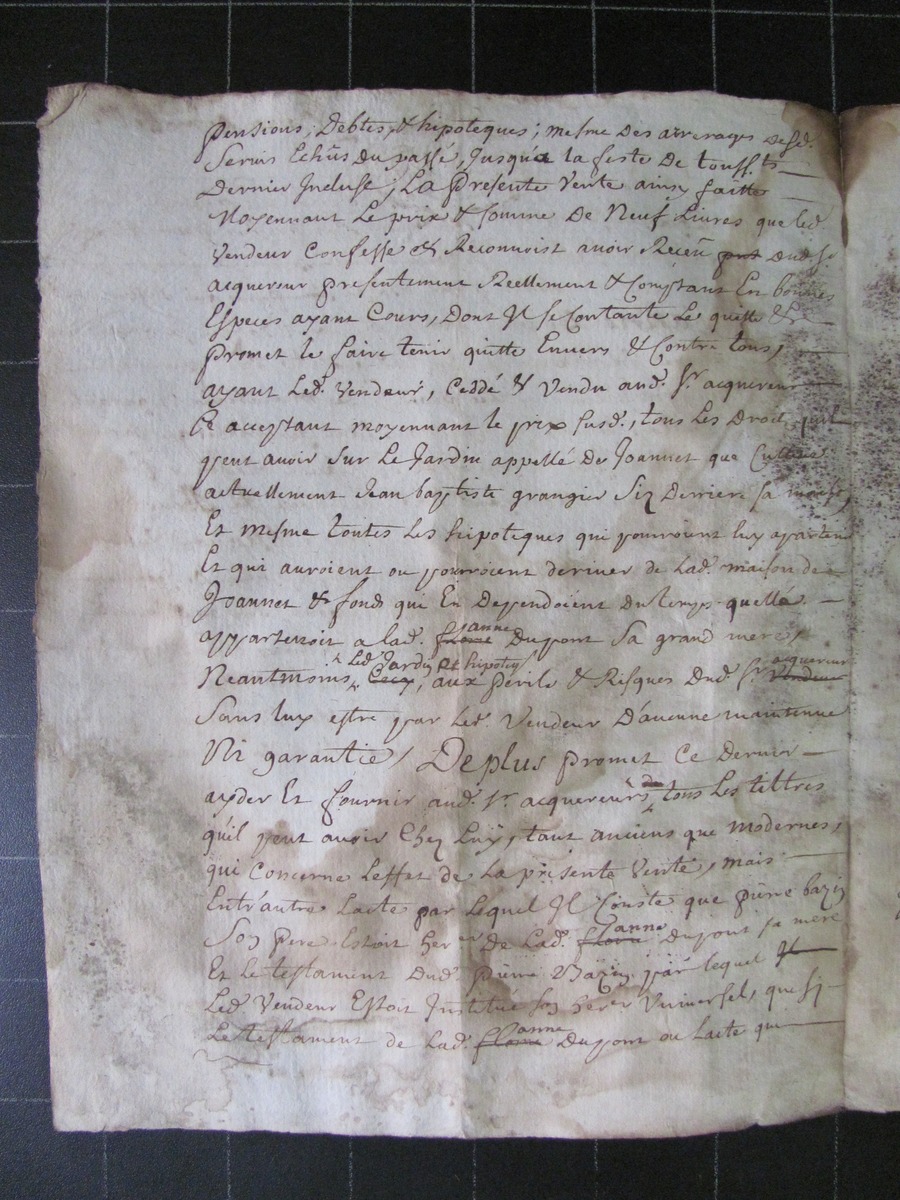 pensions, Debtes, & hipoteques; mesme Des arrerages desd.
Servis Echûs Du passé, Jusqu'a la feste De toussts
Dernier Incluse; La presente vente ainsy faitte
Moyennant Le prix & somme De Neuf Livres que led.
Vendeur Confesse & Reconnoist avoir Receü dud. sr
acquereur presentement Reellement & Comptant En bonnes
Especes ayant Cours, Dont Il se Contante Le quitte &
promet le faire tenir quitte Envers & Contre tous,
ayant Led. Vendeur, Ceddé & Vendu aud. sr acquereur
Ce acceptant moyennant le prix susd., tous Les Droits quil
peut avoir sur Le Jardin appellé De Joannet que Cultive
actuellement Jean baptiste grangier Siz Derriere sa maison,
Et mesme toutes Les hipoteques qui pourroient luy aparten
Et qui auroient ou pourroient deriver de Lad. maison de
Joannet & fonds qui En Dependoient Du temps quelle
appartenoit a lad. anne Dupont Sa grand mere,
Neantmoins Led. Jardin Et hipoteq, aux perils & Risques Dud. sr acquereur
Sans luy estre par Led. Vendeur D'aucune maintenue
Ni garantie, De plus promet Ce Dernier
ayder Et fournir aud. sr acquereur de tous Les tiltres
qu'il peut avoir Chez Luy, tant anciens que modernes,
qui Concerne Leffet de La presente Vente, mais
Entr'autre Lacte par Lequel Il Conste que pierre bazin
Son Pere Estoit herer De Lad. anne Dupont sa mere
Et le testament Dud. pierre Bazin par lequel
Led. Vendeur Estoit Institué son herer Universel, que si
Le testament de Lad. anne Dupont ou Lacte qui